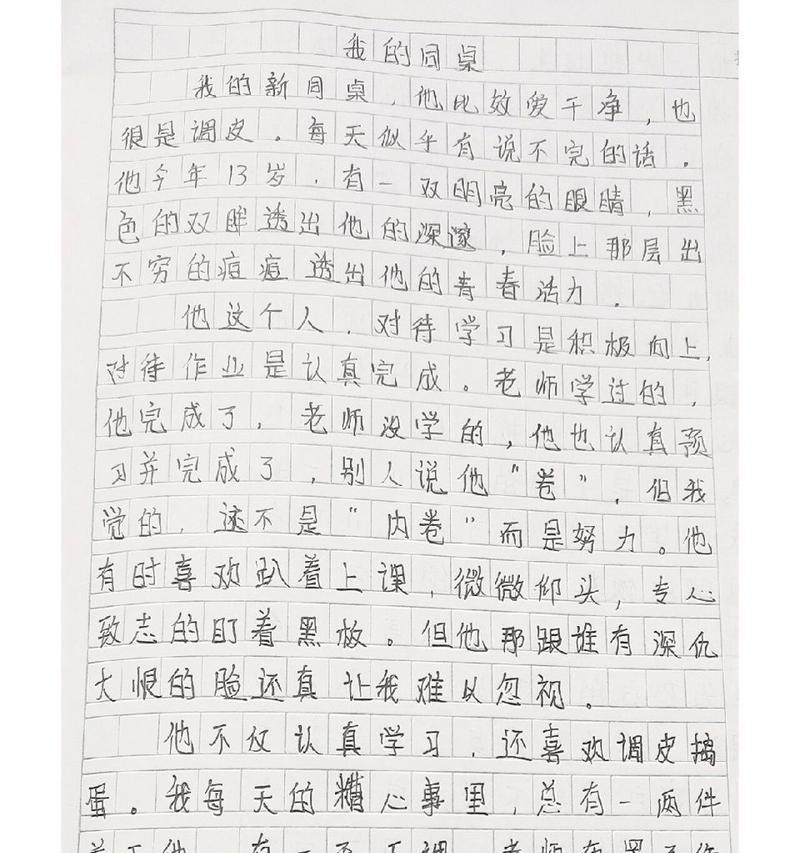 我的同桌
我的新同桌，他比效爱干净，也
很是调皮。每天似乎有说不完的话。
他今年13岁，有一双明亮的眼睛，黑
色的双眸透出他的深邃，脸上那层出
不穷的痘痘透出他的青春活力。
他这个人，对待学习是积极向上，
对待作业是认真完成。老师学过的，
他完成了，老师没学的，他也认真预
习并完成了，别人说他“卷”，但我
觉的，这不是“内卷”而是努力。他
有时喜欢趴着上课，微微仰头，专心
致志的盯着黑板。但他那跟谁有深仇
大恨的脸还真让我难以忽视。
他不仅认真学习，还喜欢调皮捣
蛋。我每天的糟心事里，总有一两件